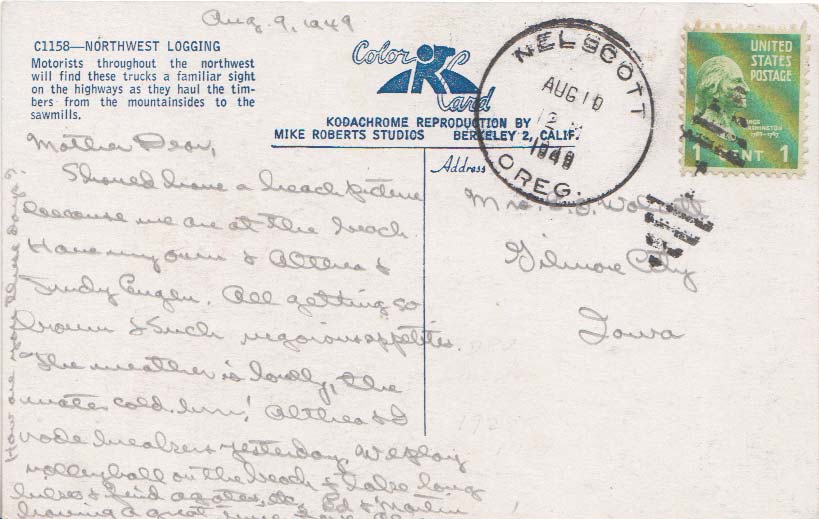 Aug. 9, 1949
C1158—NORTHWEST LOGGING
Motorists throughout the northwest
will find these trucks a familiar sight
on the highways as they haul the tim-
bers from the mountainsides to the
sawmills.
Color
Card
KODACHROME REPRODUCTION BY
MIKE ROBERTS STUDIOS BERKELEY 2, CALIF.
NELSCOTT
AUG 10
12 M
1949
OREG.
UNITED
STATES
POSTAGE
1 CENT 1
Mother Dear,
Should have a beach picture
because we are at the beach.
Have my own & Althea &
Judy. All getting so
brown & such vigorous appetites.
The weather is lovely, the
water cold. brr! Althea & I
rode breakers yesterday. We play
volleyball on the beach & take long
hikes & find agates, etc. Ed & Martin
having a great time
How are you these days
Address
Mrs.
Gilmore City
Iowa